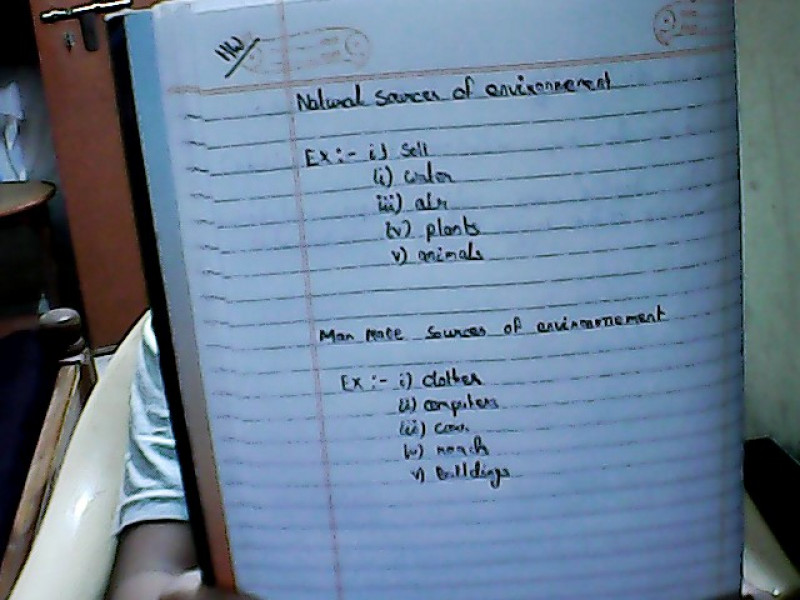 HW
Natural Sources of environnement
Ex :- i) Soil
(i) water
iii) air
iv) plants
v) animals
Man Made Sources of environnement
Ex :- i) clothes
(ii) computers
(iii) cars
iv) roads
v) Buildings